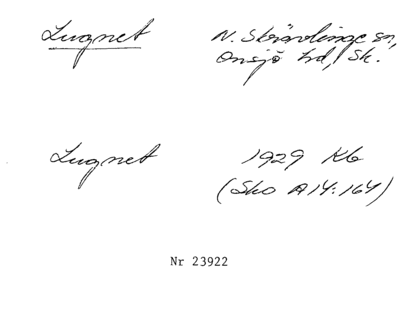 Lugnet
N. Skrävlinge sn,
Onsjö hd, Sk.
Lugnet
1929 Kb
(Sko A14:164)
Nr 23922